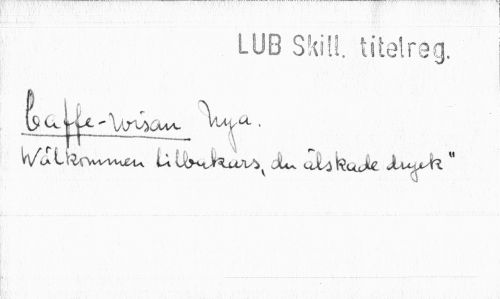 LUB Skill. titelreg.
Caffe-wisan Nya.
Wälkommen tillbukars, du älskade dryck"